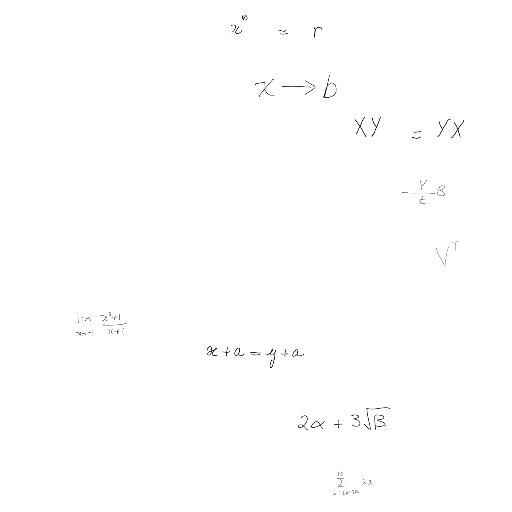 x^n = r
x → b
XY = YX
- Y/t B
√T
lim x→-1 (x³+1)/(x+1)
x + a = y + a
2α + 3√B
10 Σ